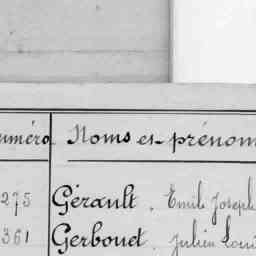 uméro Noms et prénom
275 Gérault. Émile Joseph
361 Gerbouet. Julien Loui